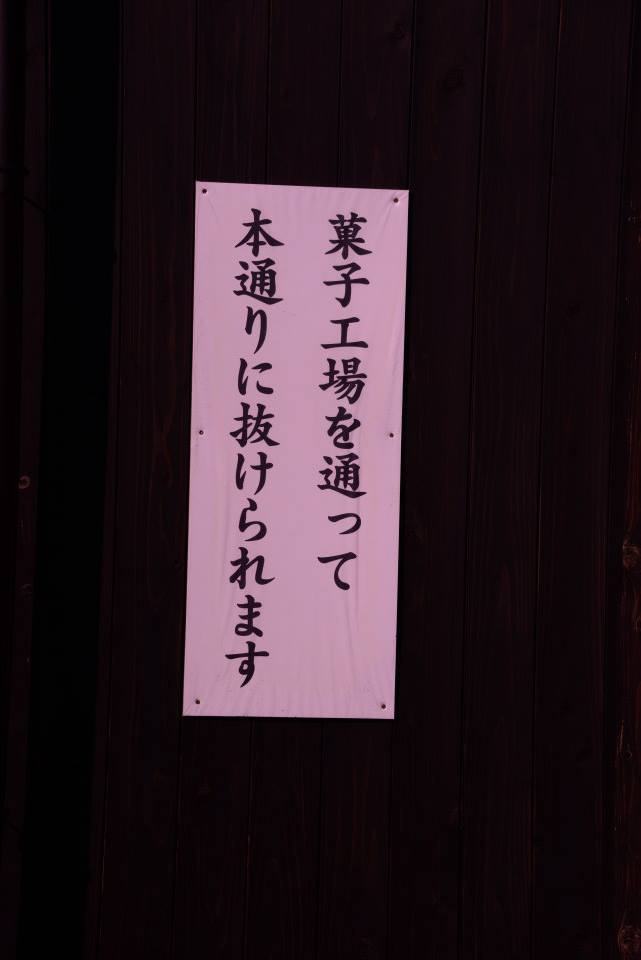 菓子工場を通って
本通りに抜けられます